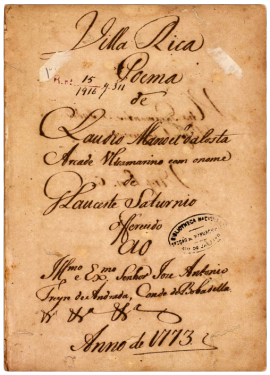 Villa Rica
Poema
de
Claudio Manoel da Costa
Arcade Ultramarino com o nome
Glauceste Saturnio
Offerecido
ao
Illmo e Exmo Senhor Jose Antonio
Freyre de Andrada, Conde de Bobadella
Anno de 1773
15
1916
BIBLIOTHECA NACIONAL
RIO DE JANEIRO